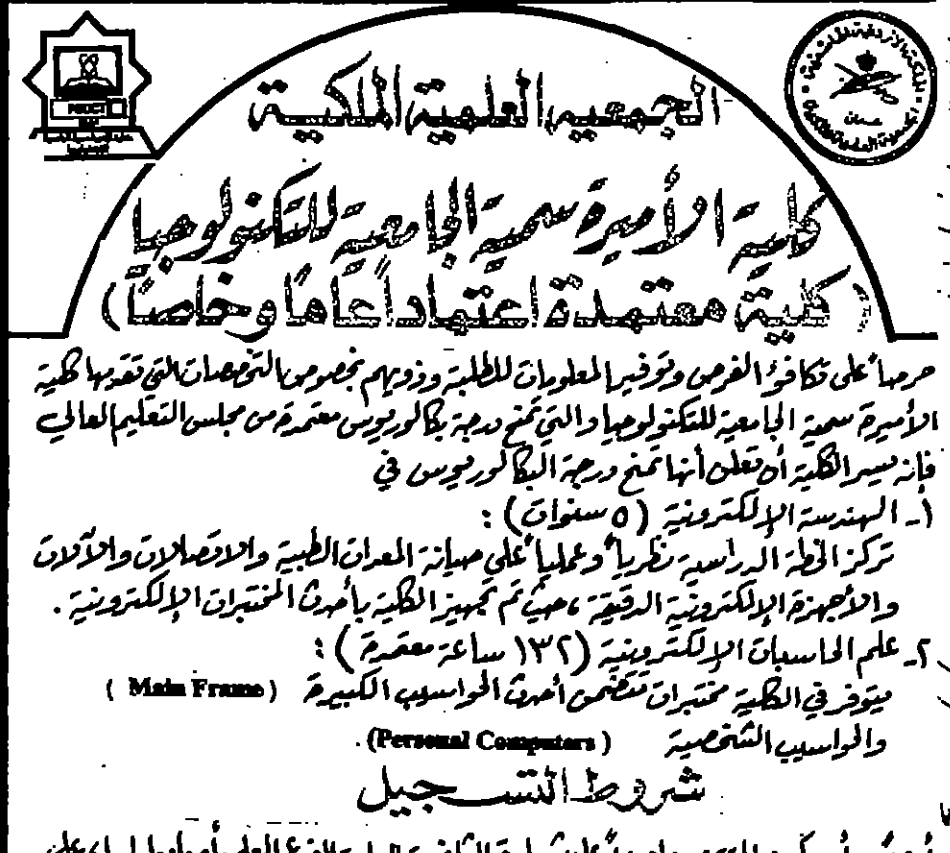 الجمعية العلمية الملكية
كلية الأميرة سمية الجامعية للتكنولوجيا
(كلية معتمدة اعتماداً عاماً وخاصاً)
حرصاً على تكافؤ الفرص وتوفير المعلومات للطلبة وذويهم بخصوص التخصصات التي تقدمها كلية
الأميرة سمية الجامعية للتكنولوجيا والتي تمنح درجة بكالوريوس معتمدة من مجلس التعليم العالي
فإنه يسر الكلية أن تعلن أنها تمنح درجة البكالوريوس في
١- الهندسة الإلكترونية (٥ سنوات) :
تركز الخطة الدراسية نظرياً وعملياً على صيانة المعدات الطبية والاتصالات والآلات
والأجهزة الإلكترونية الدقيقة ، حيث تم تجهيز الكلية بأحدث المختبرات الإلكترونية .
٢- علم الحاسبات الإلكترونية (١٣٢ ساعة معتمدة) :
يتوفر في الكلية مختبرات تتضمن أحدث الحواسيب الكبيرة (Main Frame)
والحواسيب الشخصية (Personal Computers) .
شروط التسجيل